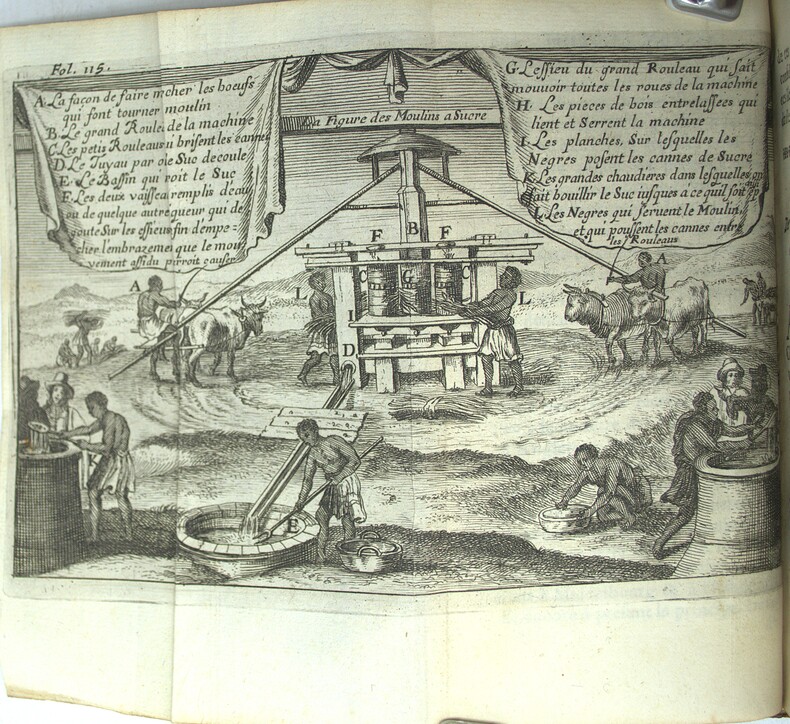 Fol. 115.
A. La façon de faire mcher les boeufs
qui font tourner moulin
B. Le grand Roule de la machine
C. Les petis Rouleaux ui brisent les canne
D. Le Tuyau par ou le Suc decoule
E. Le Bassin qui roit le Suc
F. Les deux vaissea remplis deau
ou de quelque autre gueur qui de
goute Sur les essieus fin dempe=
cher l'embrazeme que le mou
vement assidu pirroit causer
a Figure des Moulins a Sucre
G. Lessieu du grand Rouleau qui fait
mouuoir toutes les roues de la machine
H. Les pieces de bois entrelassees qui
lient et Serrent la machine
I. Les planches, Sur lesquelles les
Negres posent les cannes de Sucre
K. Les grandes chaudieres dans lesquelles on
fait bouillir le Suc iusques a ce quil soit ep
L. Les Negres qui seruent le Moulin,
et qui poussent les cannes entre
les Rouleaus
F B F
C G C
A L L A
I
D
E